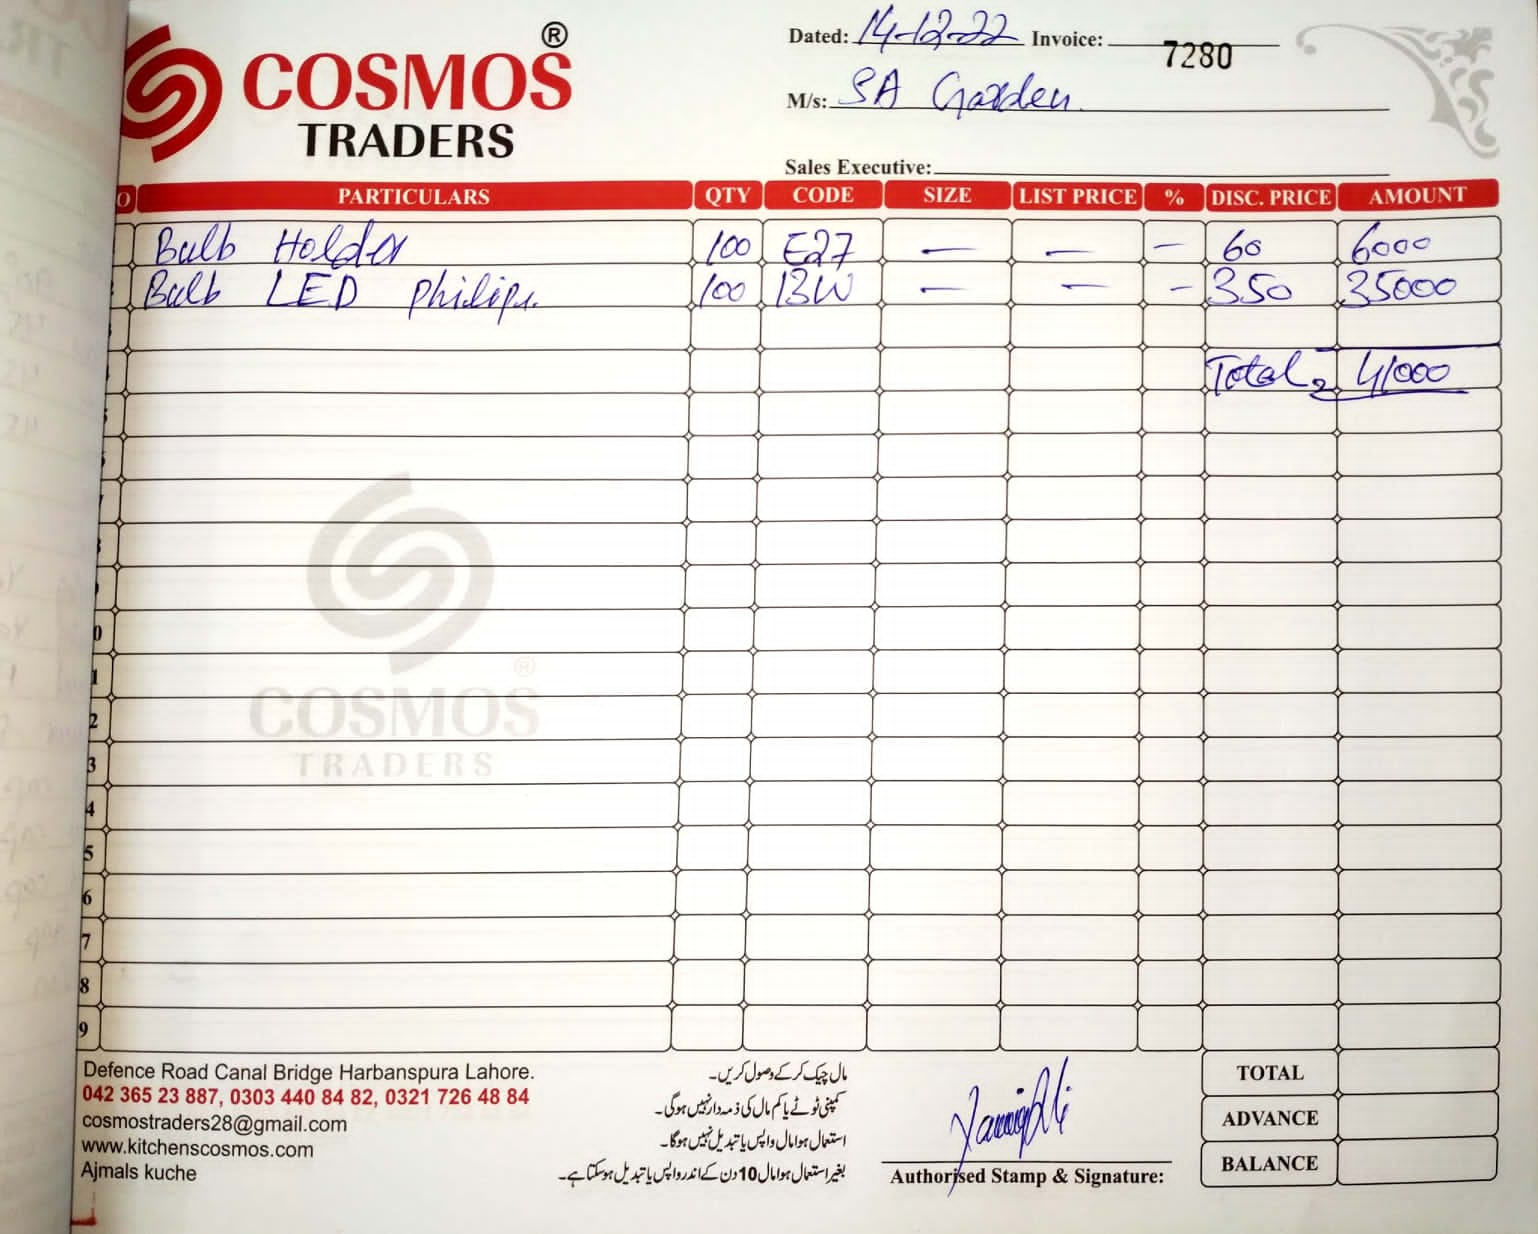 COSMOS ®
TRADERS
Dated: 14-12-22 Invoice: 7280
M/s: SA Garden.
Sales Executive:
O PARTICULARS QTY CODE SIZE LIST PRICE % DISC. PRICE AMOUNT
Bulb Holder 100 E27 — — — 60 6000
Bulb LED philips. 100 13W — — - 350 35000
3
4 Total = 41000
5
6
7
8
9
0
1
2
3
4
5
6
7
8
9
COSMOS ®
TRADERS
Defence Road Canal Bridge Harbanspura Lahore.
042 365 23 887, 0303 440 84 82, 0321 726 48 84
cosmostraders28@gmail.com
www.kitchenscosmos.com
Ajmals kuche
مال چیک کر کے وصول کریں۔
کمپنی ٹوٹے یا کم مال کی ذمہ دار نہیں ہوگی۔
استعمال ہوا مال واپس یا تبدیل نہیں ہوگا۔
بغیر استعمال ہوا مال 10 دن کے اندر واپس یا تبدیل ہوسکتا ہے۔
Authorised Stamp & Signature:
TOTAL
ADVANCE
BALANCE